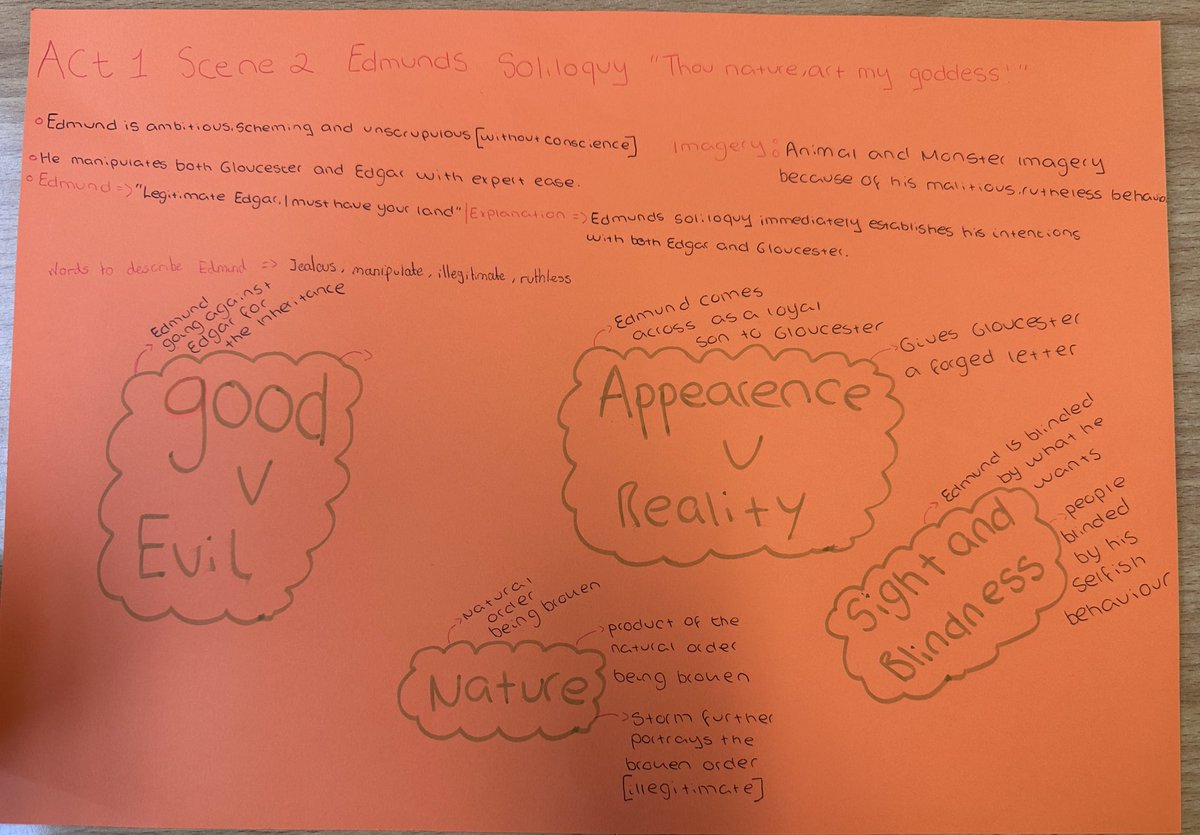 Act 1 Scene 2 Edmunds Soliloquy "Thou nature, art my goddess!"
Edmund is ambitious, scheming and unscrupulous [without conscience]
He manipulates both Gloucester and Edgar with expert ease.
Edmund => "Legitimate Edgar, I must have your land" | Explanation => Edmunds soliloquy immediately establishes his intentions
with both Edgar and Gloucester.
Imagery: Animal and Monster imagery
because of his malitious, ruthless behavio
Words to describe Edmund => Jealous, manipulate, illegitimate, ruthless
Edmund
going against
Edgar for
the inheritance
good
v
Evil
Edmund comes
across as a loyal
son to Gloucester
Gives Gloucester
a forged letter
Appearence
v
Reality
Edmund is blinded
by what he
wants
people
blinded
by his
selfish
behaviour
Sight and
Blindness
Natural
order
being broken
product of the
natural order
being broken
Nature
Storm further
portrays the
broken order
[illegitimate]